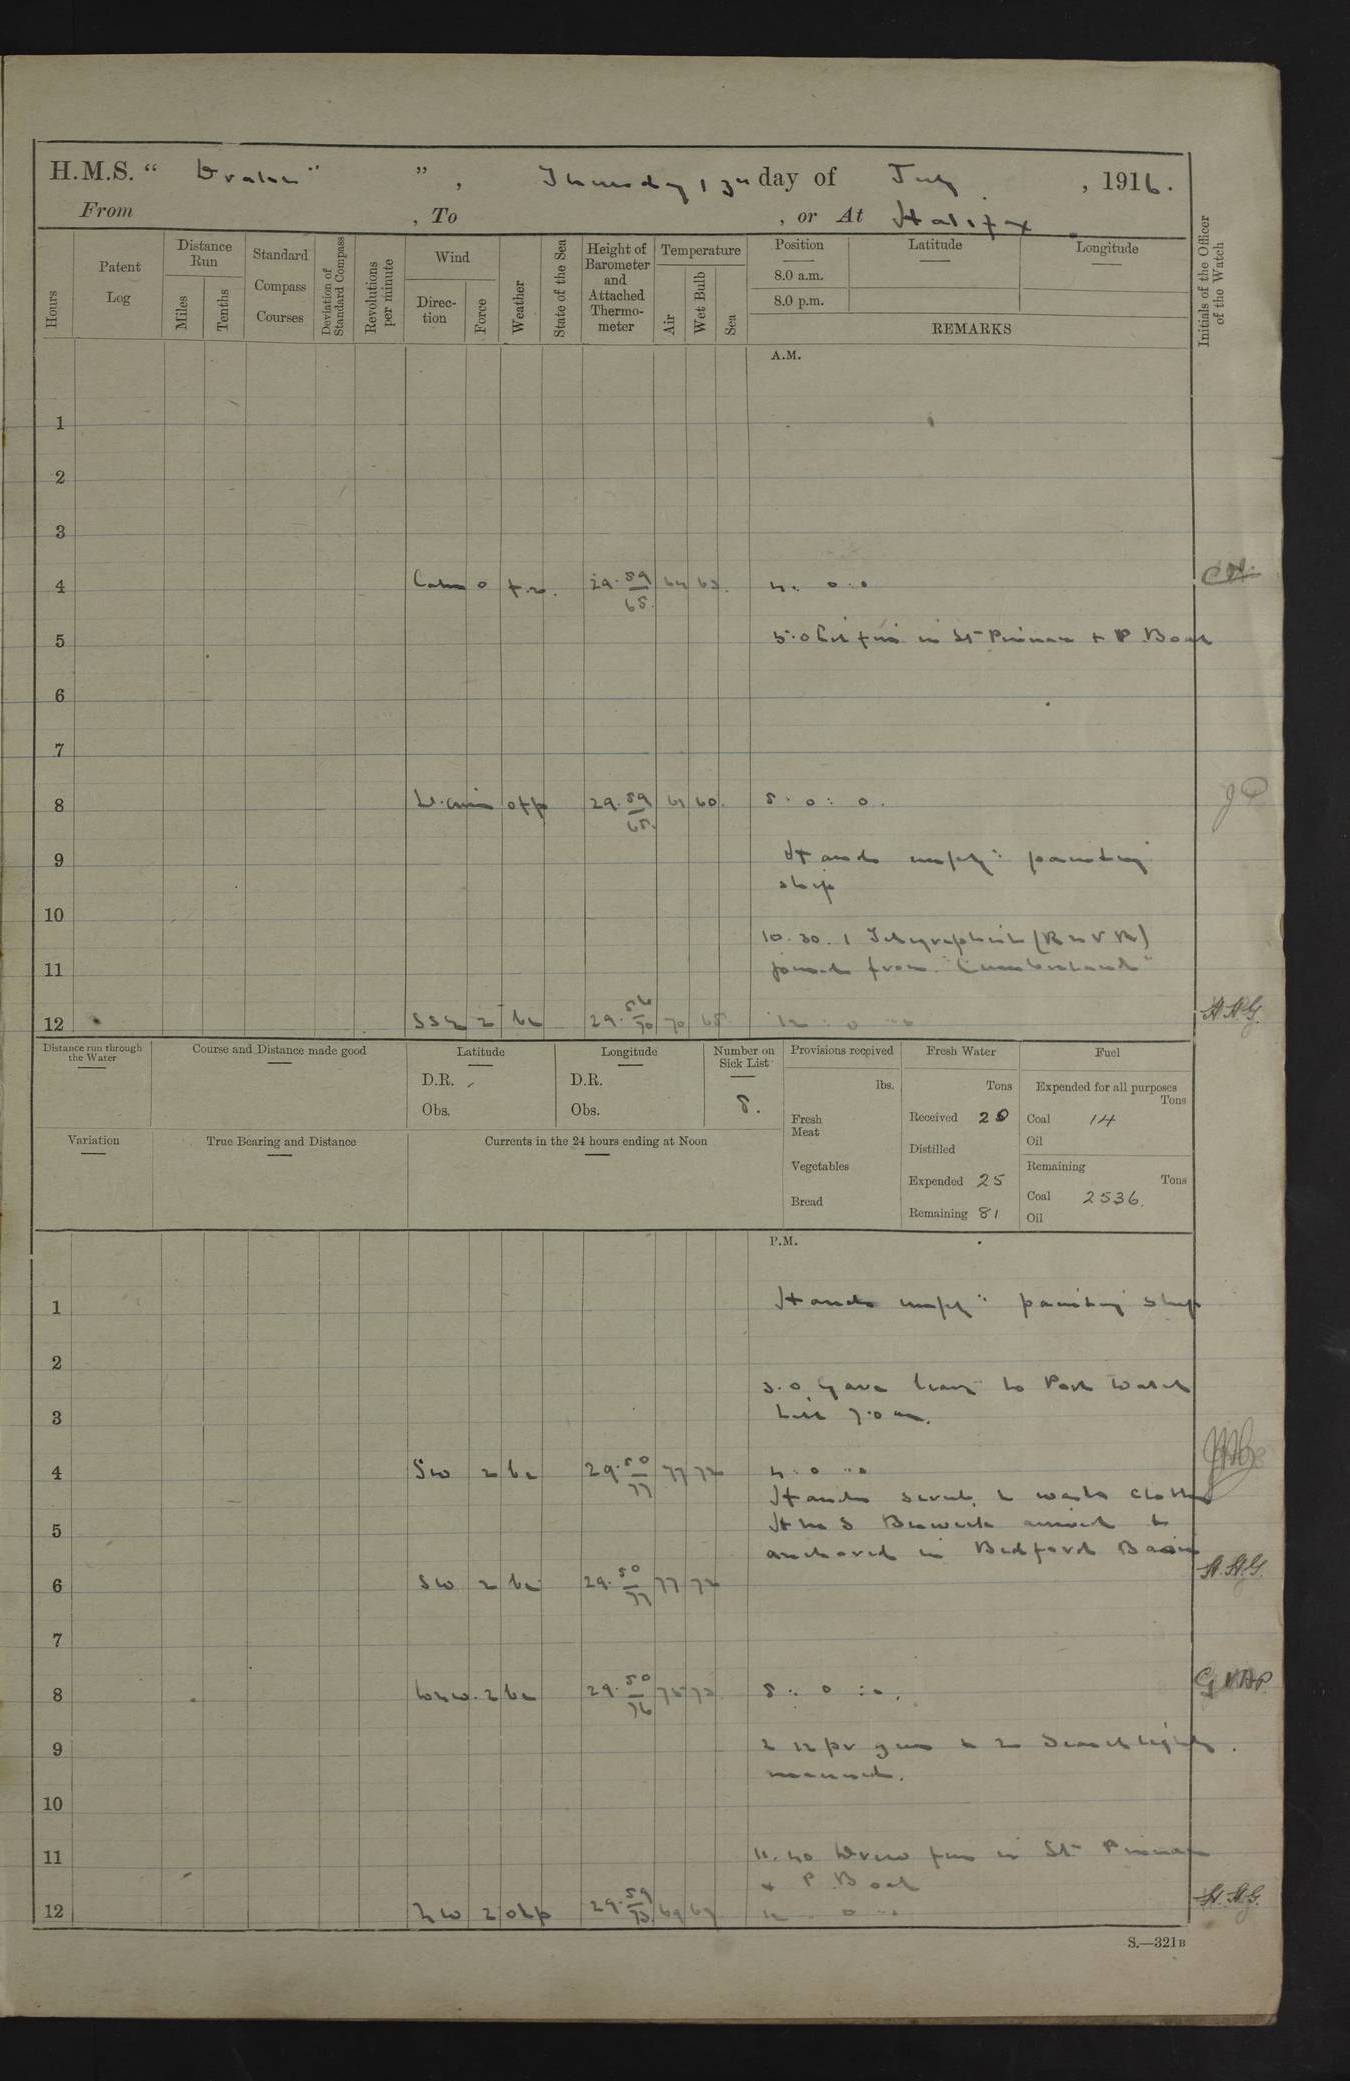 H.M.S. “ Drake " ” , Thursday 13th day of July , 1916.
From , To , or At Halifax
Hours
Patent Log
Distance Run
Miles
Tenths
Standard Compass Courses
Deviation of Standard Compass
Revolutions per minute
Wind
Direc-tion
Force
Weather
State of the Sea
Height of Barometer and Attached Thermo-meter
Temperature
Air
Wet Bulb
Sea
Position
8.0 a.m.
8.0 p.m.
Latitude
Longitude
REMARKS
Initials of the Officer of the Watch
A.M.
1
2
3
4 Calm 0 29.59 65 4. 0:0
5 5.0 Lit fires in St Pinnace + P. Boat
6
7
8 off 29.59 65 61 60 8:0:0.
9 Hands empd: painting
ship
10
10.30. 1 Telegraphist (RNVR)
11 joined from "Cumberland"
12 SSE 2 bc 29.56 70 70 68 12:0 H.H.G.
Distance run through the Water
Course and Distance made good
Latitude
D.R.
Obs.
Longitude
D.R.
Obs.
Number on Sick List
8.
Provisions received
lbs.
Fresh Meat
Vegetables
Bread
Fresh Water
Tons
Received 20
Distilled
Expended 25
Remaining 81
Fuel
Expended for all purposes
Tons
Coal 14
Oil
Remaining
Tons
Coal 2536.
Oil
Variation
True Bearing and Distance
Currents in the 24 hours ending at Noon
P.M.
1 Hands empd: painting ship
2
3.0 Gave leave to Port Watch
3 till 7.0 am.
4 SW 2 bc 29.50 77 77 72 4:0
Hands scrub & wash clothes
5 HMS Berwick arrived &
anchored in Bedford Basin
6 SW 2 bc 29.50 77 77 72 H.H.G.
7
8 WNW. 2 bc 29.50 76 8:0:0.
9 2 12 pr guns & 2 Searchlights
manned.
10
11 11.40 Drew fires in St Pinnace
+ P. Boat
12 NW 2 29.59 73 69 12 0 H.H.G.
S.—321B